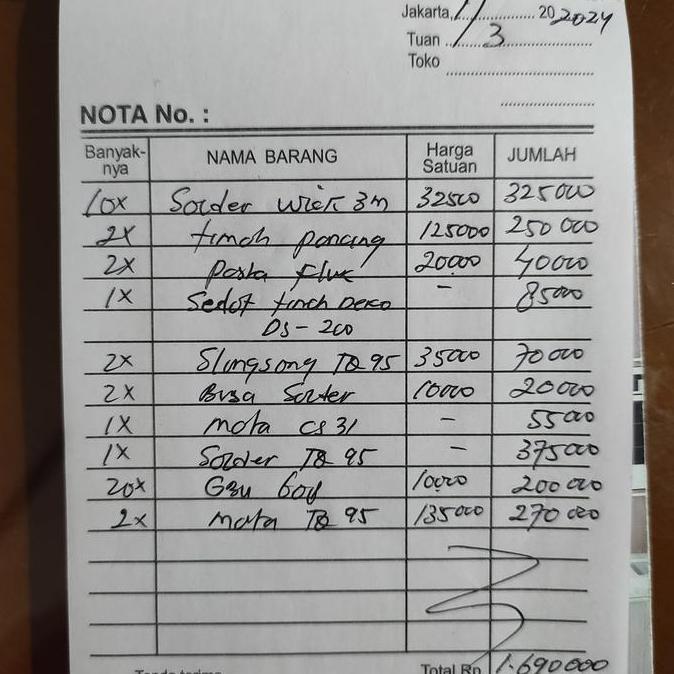 Jakarta, 1/ 20 2024
Tuan 3
Toko
NOTA No. :
Banyak-nya NAMA BARANG Harga Satuan JUMLAH
10x Solder Wick 3m 32500 325000
2x timah pancing 125000 250 000
2x Pasta flux 20000 40000
1x Sedot timah Deko - 85000
DS-200
2x Slongsong TQ 95 35000 70000
2x Busa Solder 10000 20000
1x mata CS 31 - 55000
1x Solder TQ 95 - 375000
20x 10000 200000
2x mata TQ 95 135000 270 000
Tanda terima Total Rp 1.690000